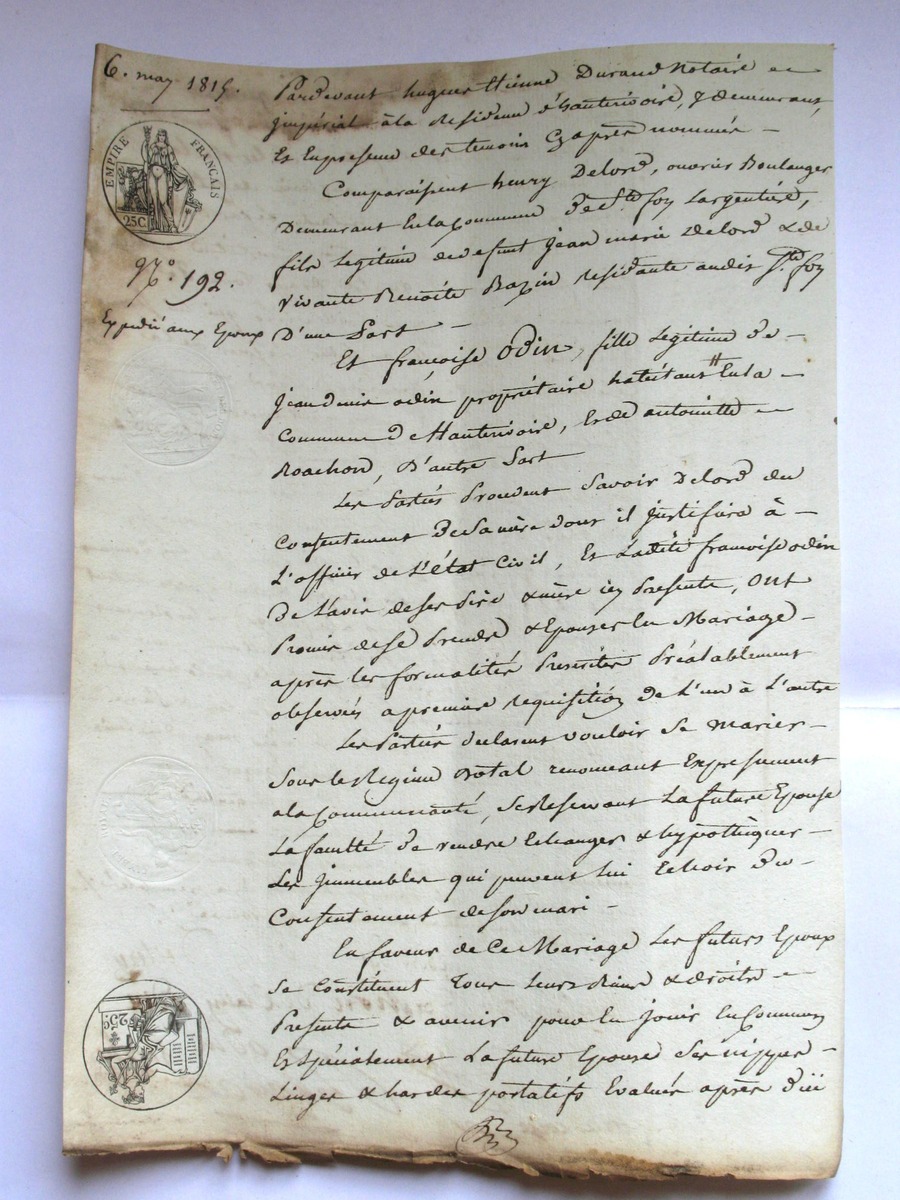 6. may 1815.
EMPIRE FRANÇAIS
25C
N.º 192.
Expedié aux Epoux
25C
Pardevant hugues Etienne Durand Notaire
jmpérial à la Residence d'hauterivoire, y demeurant,
Et En presence des temoins Cy après nommés —
Comparaissent henry Delord, ouvrier Boulanger
Demeurant En la Commune De Ste foy Largentière,
fils Legitime de defunt jean marie Delord & de
vivante Benoite Bazin residante audit Ste foy
D'une Part —
Et françoise Odin, fille Legitime De —
jean denis odin propriétaire habitant En la —
Commune D'Hauterivoire, Et de antoinette
Roachon, D'autre Part
Les Parties Procedent Savoir Delord du
Consentement De Sa mère dont il justifira à —
L'officier de L'état Civil, Et Ladite françoise odin
De L'avis de ses Père & mère icy Presents, Ont
Promis de se Prendre & Epouser En Mariage —
après les formalités Prescrites Préalablement
observées a premiere requisition de L'un à L'autre
Les Parties declarent vouloir Se marier —
Sous le Regime Dotal renonceant Expressement
a la Communauté, Se Reservant La future Epouse
La faculté De vendre Echanger & hypothéquer —
Les jmmeubles qui peuvent lui Echoir Du —
Consentement de son mari —
En faveur de Ce Mariage Les futurs Epoux
Se Constituent Tous leurs Biens & droits
Presents & avenir pour En jouir En Commun
Et Spécialement La future Epouse Ses nippes —
Linges & hardes portatifs Evalués après Dûe